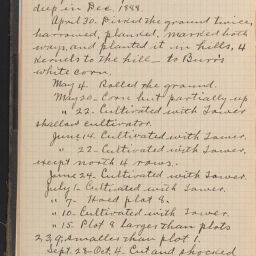 deep in Dec., 1888.
April 30. Divided the ground twice,
harrowed, planked, marked both
ways, and planted it in hills, 4
kernels to the hill to Burr's
white corn.
May 4. Rolled the ground.
May 20- Corn but partially up
" 22- Cultivated with Tower
shallow cultivator.
June 14. Cultivated with Tower.
" 22- Cultivated with Tower,
except north 4 rows.
June 24- Cultivated with Tower.
July 1- Cultivated with Tower.
" 7- Hoed plot 8.
" 10- Cultivated with Tower.
" 15- Plot 8 larger than plots
2, 3, 9, smaller than plot 1.
Sept. 28-Oct. 4. Cut and shocked